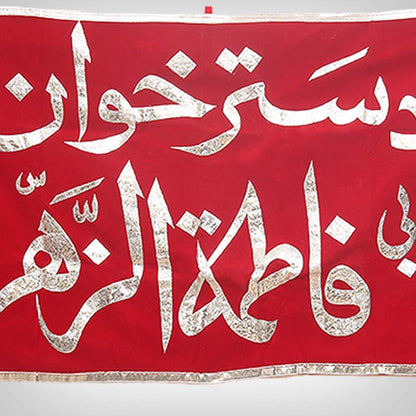 دسترخوان
بی فاطمة الزهرّا س